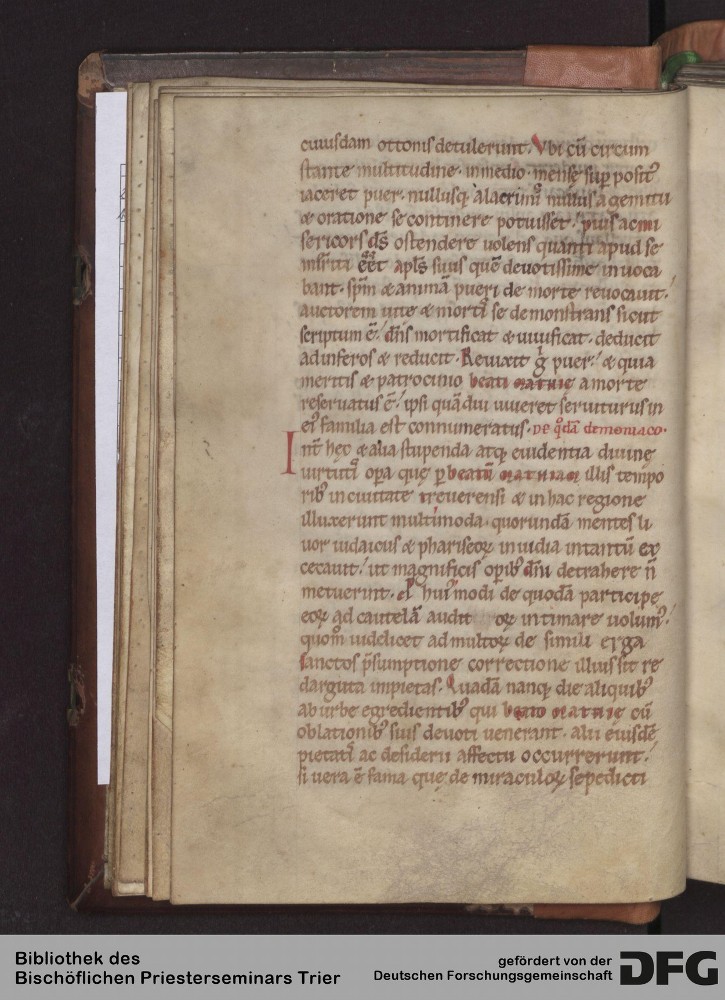 cuiusdam ottonis detulerunt. Vbi cū circum
stante multitudine. in medio. mense sup positꝰ
iaceret puer. nullusq; a lacrimis nullus a gemitu
& oratione se continere potuisset. pius ac mi
sericors d̄s ostendere uolens quanti apud se
meriti eēt apl̄s suus quē deuotissime in uoca
bant. sp̄m & animā pueri de morte reuocauit.
auctorem uite & mortis se demonstrans sicut
scriptum ē. dn̄s mortificat & uiuificat. deducit
ad inferos & reducit. Reuixit g̊ puer. & quia
meritis & patrocinio beati mathie a morte
reseruatus ē. ipsi quādiu uiueret seruiturus in
eiꝰ familia est connumeratus. De q̊dā demoniaco.
Int̄ hec & alia stupenda atq; euidentia diuinę
uirtutis opa quę p beatū mathiam illis tempo
ribꝰ in ciuitate treuerensi & in hac regione
illuxerunt multimoda. quorundā mentes li
uor iudaicus & phariseoꝝ inuidia intantū ex
cecauit. ut magnificis opibꝰ dei detrahere n̄
metuerunt. huiꝰmodi de quodā participe
eoꝝ ad cautelā audit oꝝ intimare uolumꝰ.
quom̊ uidelicet ad multoꝝ de simili erga
sanctos p̄sumptione correctione illius sit re
darguta impietas. Quadā nanq; die aliquibꝰ
ab urbe egredientibꝰ qui beato mathie cū
oblationibꝰ suis deuoti uenerant. alii eiusdē
pietatis ac desiderii affectu occurrerunt.
si uera ē fama quę de miraculoꝝ sepedicti
Bibliothek des
Bischöflichen Priesterseminars Trier
gefördert von der
Deutschen Forschungsgemeinschaft
DFG